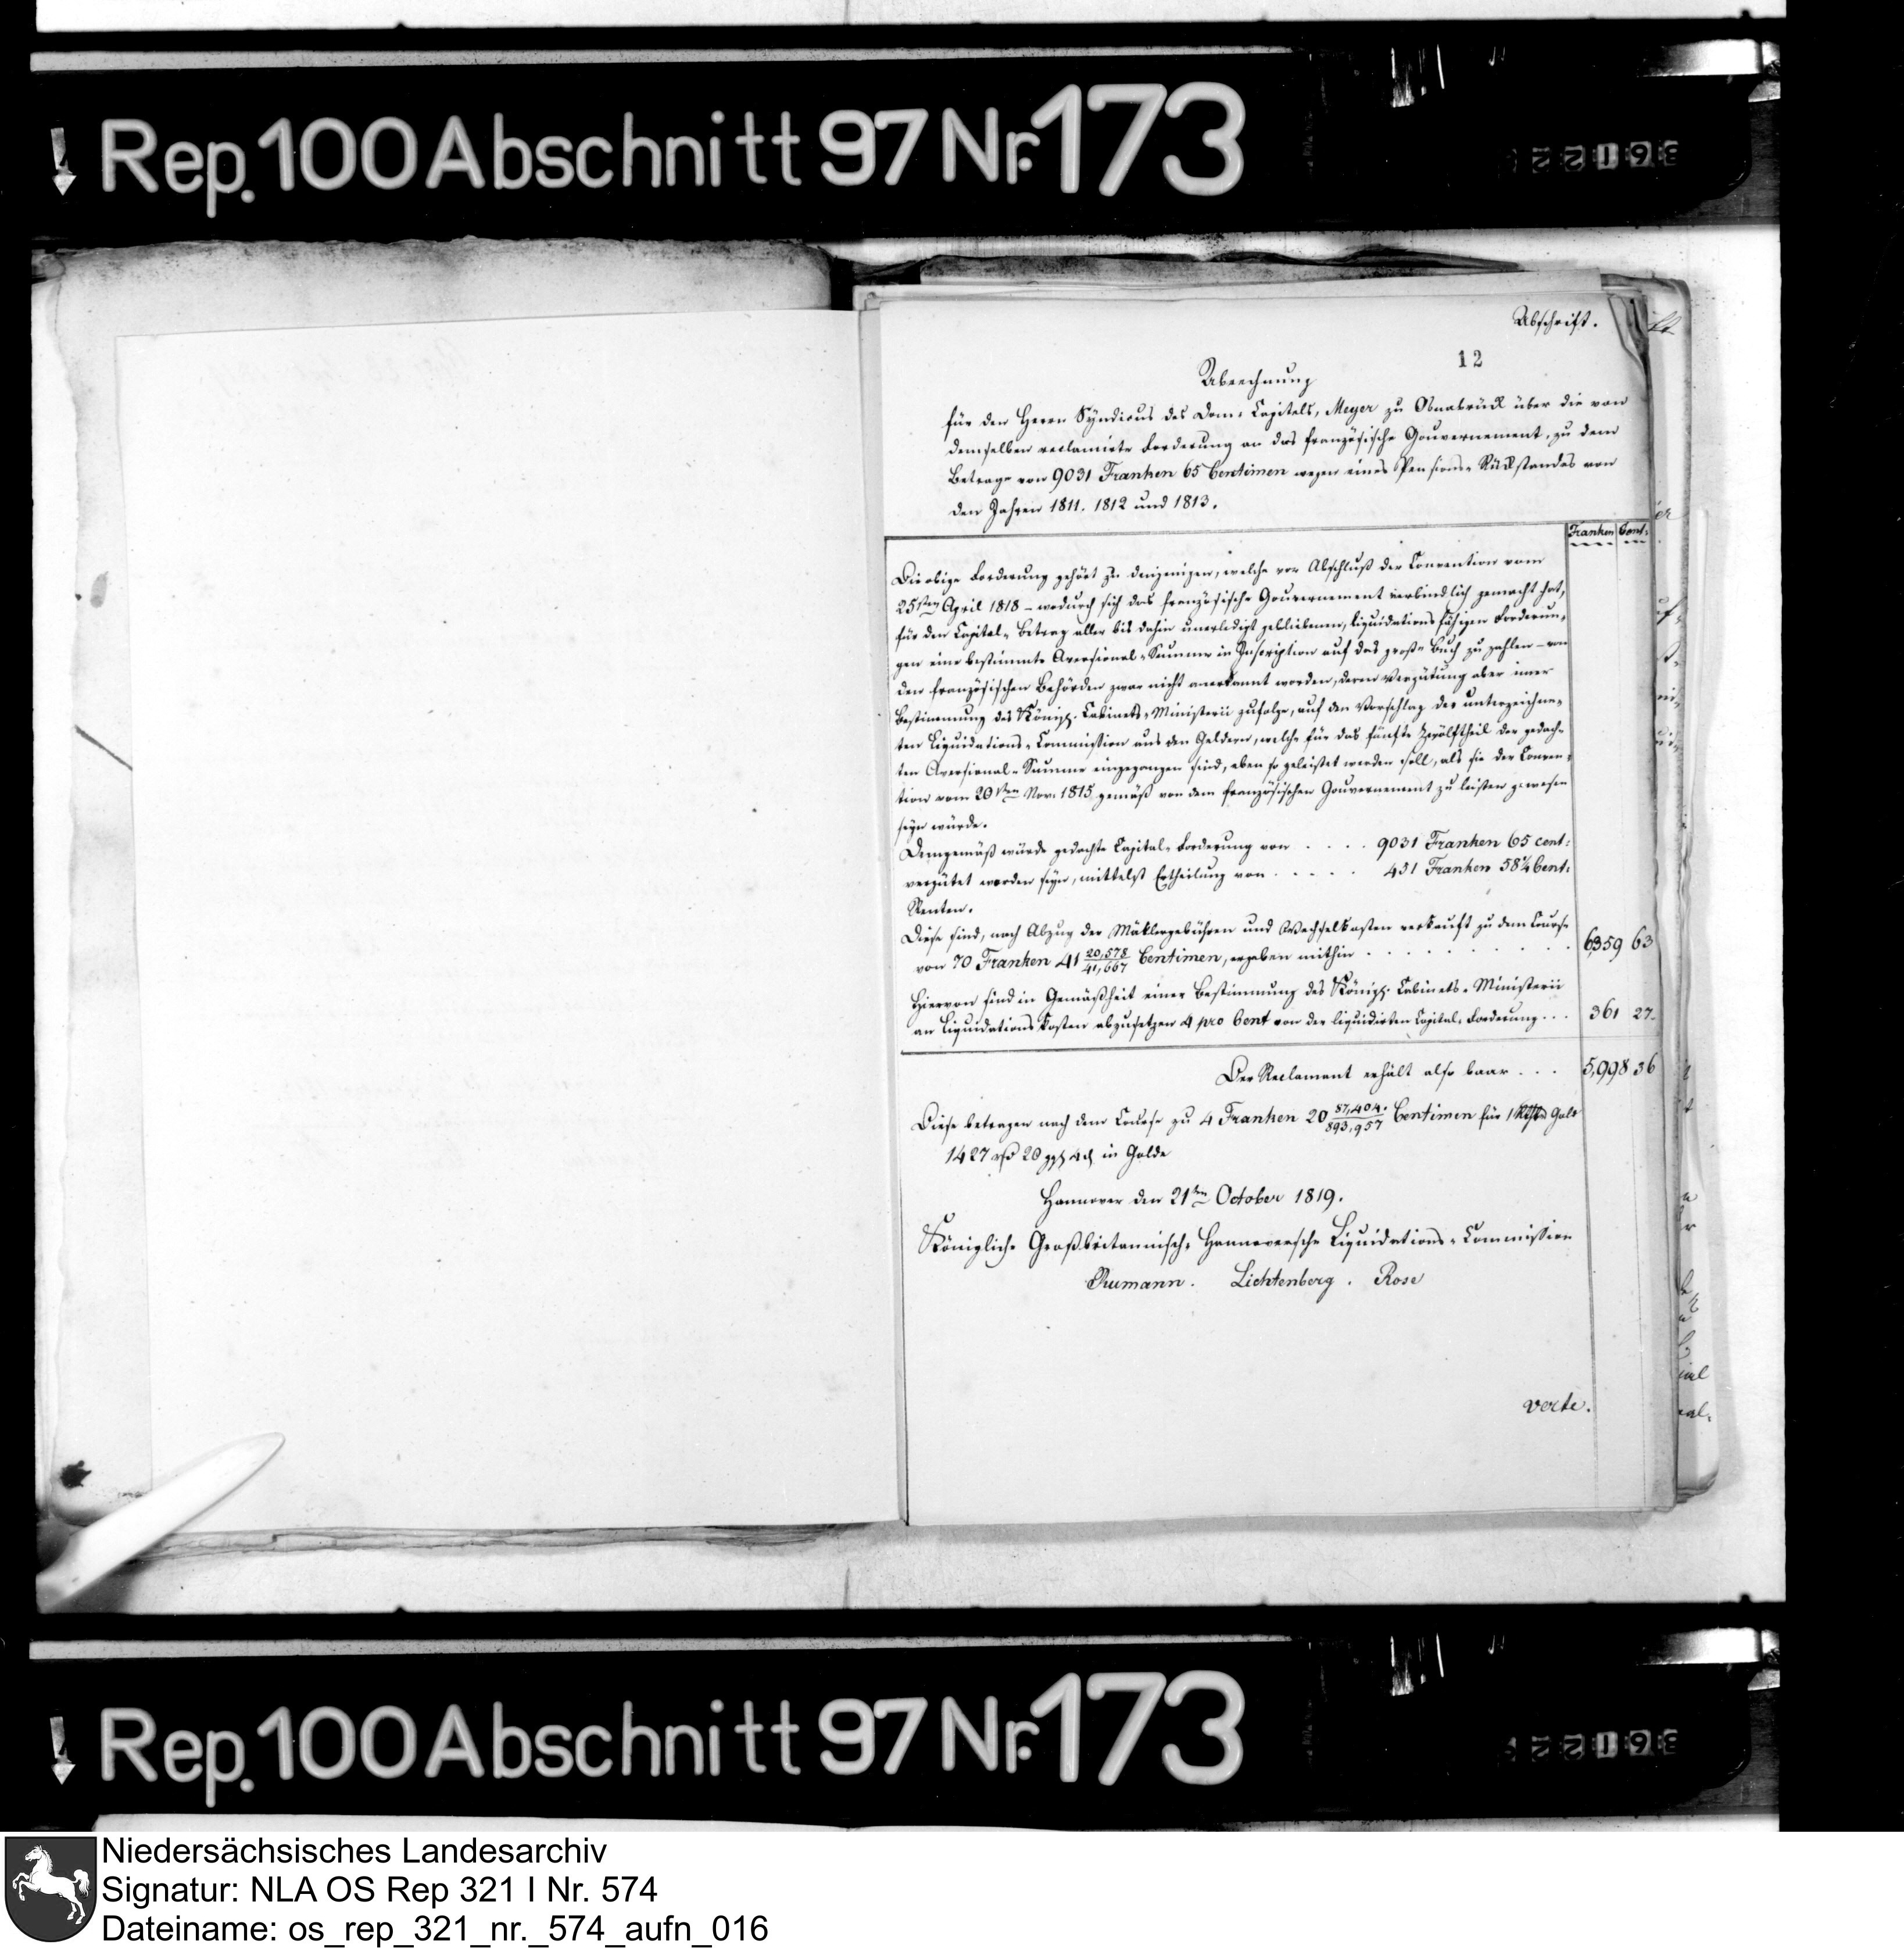 Rep. 100 Abschnitt 97 Nr. 173
Abschrift.
12
Abrechnung
für den Herrn Syndicus des Dom-Capitels, Meyer zu Osnabrück über die von
demselben reclamirte Forderung an das französische Gouvernement, zu dem
Betrage von 9031 Franken 65 Centimen wegen eines Pensions-Rückstandes von
den Jahren 1811. 1812 und 1813.
Franken Cent:
Die obige Forderung gehört zu denjenigen, welche vor Abschluß der Convention vom
25sten April 1818 – wodurch sich das französische Gouvernement verbindlich gemacht hat,
für den Capital-Betrag aller bis dahin unerledigt gebliebenen, liquidationsfähigen Forderun-
gen eine bestimmte Aversional-Summe in Inscription auf das große Buch zu zahlen – von
den französischen Behörden zwar nicht anerkannt worden, deren Vergütung aber einer
Bestimmung des Königl. Cabinets-Ministerii zufolge, auf den Vorschlag der unterzeichne-
ten Liquidations-Commission aus den Geldern, welche für das fünfte Zwölftheil der gedach-
ten Aversional-Summe eingegangen sind, eben so geleistet werden soll, als sie der Conven-
tion vom 20sten Nov: 1815 gemäß von dem französischen Gouvernement zu leisten gewesen
seyn würde.
Demgemäß würde gedachte Capital-Forderung von . . . . 9031 Franken 65 cent:
vergütet worden seyn, mittelst Ertheilung von . . . . . 451 Franken 58¼ Cent:
Renten.
Diese sind, nach Abzug der Mäklergebühren und Wechselkosten verkauft zu dem Course
von 70 Franken 41 20,578/41,667 Centimen, ergeben mithin . . . . . . . . 6359 63
Hiervon sind in Gemäßheit einer Bestimmung des Königl. Cabinets-Ministerii
an Liquidationskosten abzusetzen 4 pro Cent von der liquidirten Capital-Forderung . . . 361 27.
Der Reclamant erhält also baar . . . 5,998 36
Diese betragen nach dem Course zu 4 Franken 20 87,404./893,957 Centimen für 1 Rthlr Gold
1427 rth 20 ggl 4 d in Golde
Hannover den 21ten October 1819.
Königliche Großbritannisch-Hannoversche Liquidations-Commission
Rumann. Lichtenberg. Rose
verte.
Rep. 100 Abschnitt 97 Nr. 173
Niedersächsisches Landesarchiv
Signatur: NLA OS Rep 321 I Nr. 574
Dateiname: os_rep_321_nr._574_aufn_016